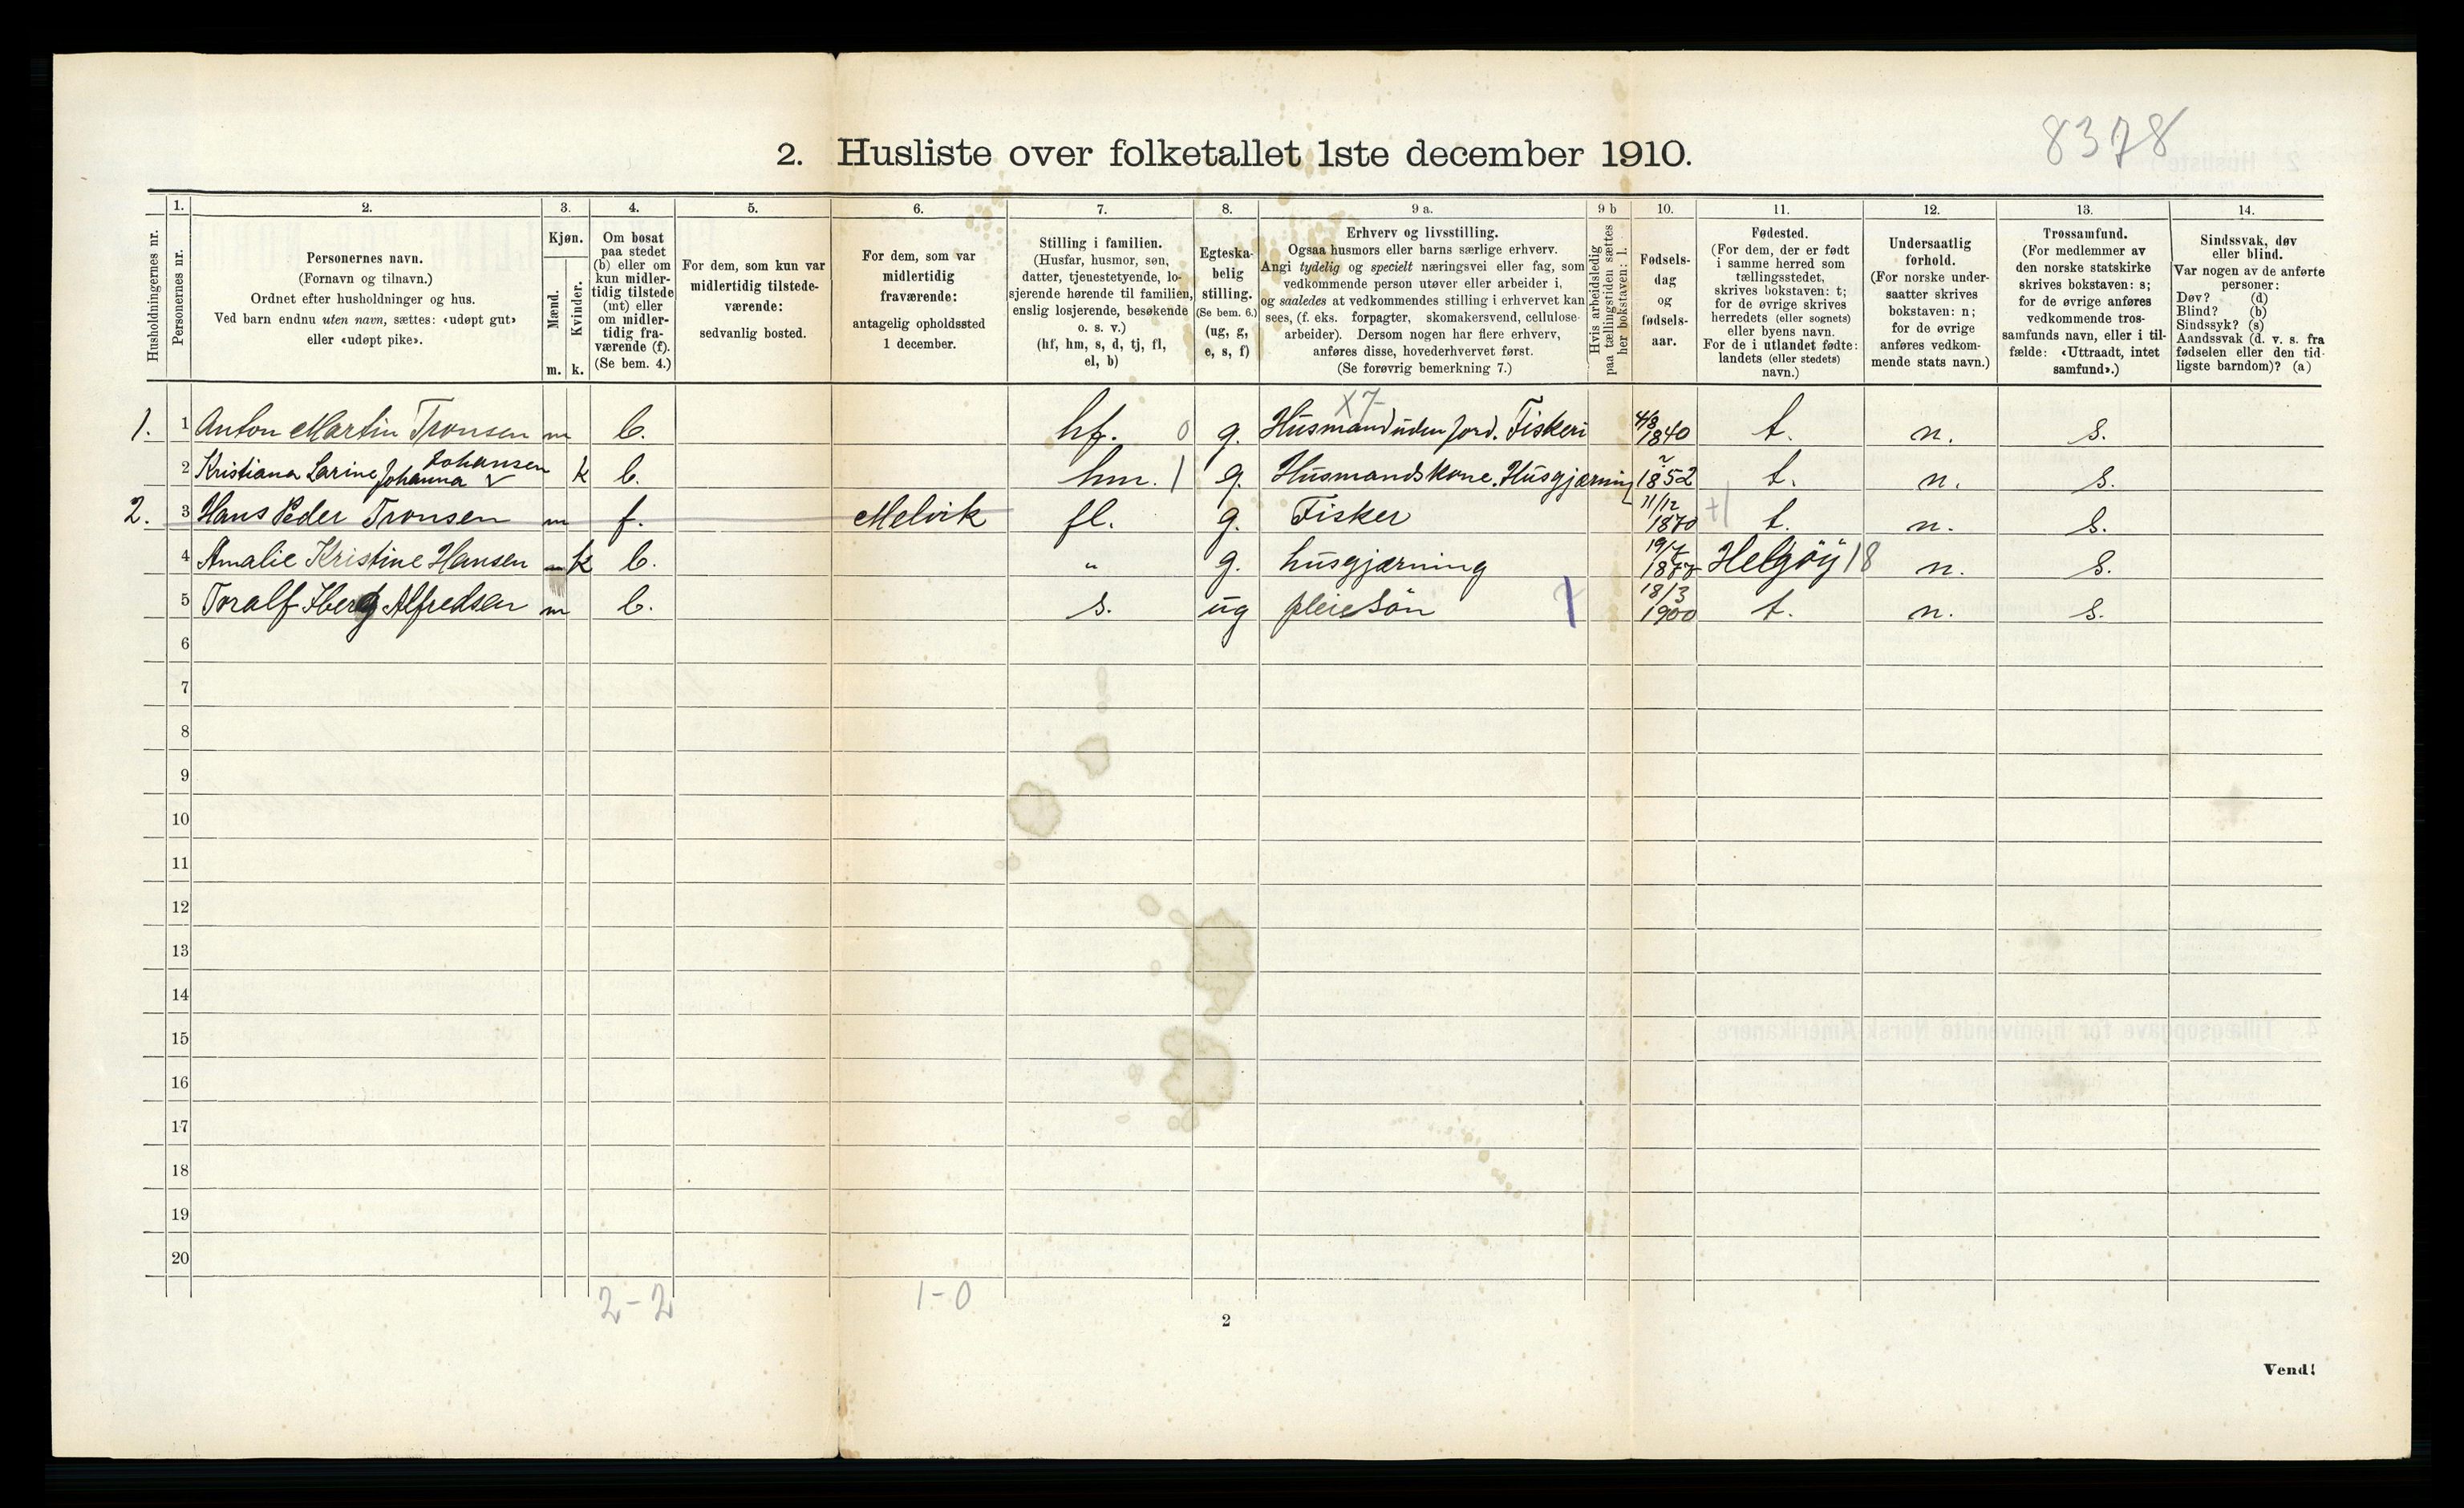 8378
2. Husliste over folketallet 1ste december 1910.
Husholdningernes nr.
1.
Personernes nr.
2.
Personernes navn.
(Fornavn og tilnavn.)
Ordnet efter husholdninger og hus.
Ved barn endnu uten navn, sættes: «udøpt gut»
eller «udøpt pike».
3.
Kjøn.
Mænd.
Kvinder.
m. k.
4.
Om bosat
paa stedet
(b) eller om
kun midler-
tidig tilstede
(mt) eller
om midler-
tidig fra-
værende (f).
(Se bem. 4.)
5.
For dem, som kun var
midlertidig tilstede-
værende:
sedvanlig bosted.
6.
For dem, som var
midlertidig
fraværende:
antagelig opholdssted
1 december.
7.
Stilling i familien.
(Husfar, husmor, søn,
datter, tjenestetyende, lo-
sjerende hørende til familien,
enslig losjerende, besøkende
o. s. v.)
(hf, hm, s, d, tj, fl,
el, b)
8.
Egteska-
belig
stilling.
(Se bem. 6.)
(ug, g,
e, s, f)
9 a.
Erhverv og livsstilling.
Ogsaa husmors eller barns særlige erhverv.
Angi tydelig og specielt næringsvei eller fag, som
vedkommende person utøver eller arbeider i,
og saaledes at vedkommendes stilling i erhvervet kan
sees, (f. eks. forpagter, skomakersvend, cellulose-
arbeider). Dersom nogen har flere erhverv,
anføres disse, hovederhvervet først.
(Se forøvrig bemerkning 7.)
9 b
Hvis arbeidsledig
paa tællingstiden sættes
her bokstaven: l.
10.
Fødsels-
dag
og
fødsels-
aar.
11.
Fødested.
(For dem, der er født
i samme herred som
tællingsstedet,
skrives bokstaven: t;
for de øvrige skrives
herredets (eller sognets)
eller byens navn.
For de i utlandet fødte:
landets (eller stedets)
navn.)
12.
Undersaatlig
forhold.
(For norske under-
saatter skrives
bokstaven: n;
for de øvrige
anføres vedkom-
mende stats navn.)
13.
Trossamfund.
(For medlemmer av
den norske statskirke
skrives bokstaven: s;
for de øvrige anføres
vedkommende tros-
samfunds navn, eller i til-
fælde: «Uttraadt, intet
samfund».)
14.
Sindssvak, døv
eller blind.
Var nogen av de anførte
personer:
Døv? (d)
Blind? (b)
Sindssyk? (s)
Aandssvak (d. v. s. fra
fødselen eller den tid-
ligste barndom)? (a)
X7-
1. 1 Anton Martin Tronsen m b. hf. 0 g. Husmand uden Jord. Fiskeri 4/8 1840 t. n. s.
2 Kristiana Larine Johanna Johansen k b. hm. 1 g. Husmandskone. Husgjærning 1852 t. n. s.
2. 3 Hans Peder Tronsen m f. Melvik fl. g. Fisker 11/12 1870 t. n. s.
4 Amalie Kristine Hansen k b. " g. husgjærning 19/7 Helgöy 18 n. s.
5 Toralf Alfredsen m b. s. ug pleiesön 18/3 1900 t. n. s.
6
7
8
9
10
11
12
13
14
15
16
17
18
19
20
2-2 1-0
2
Vend!